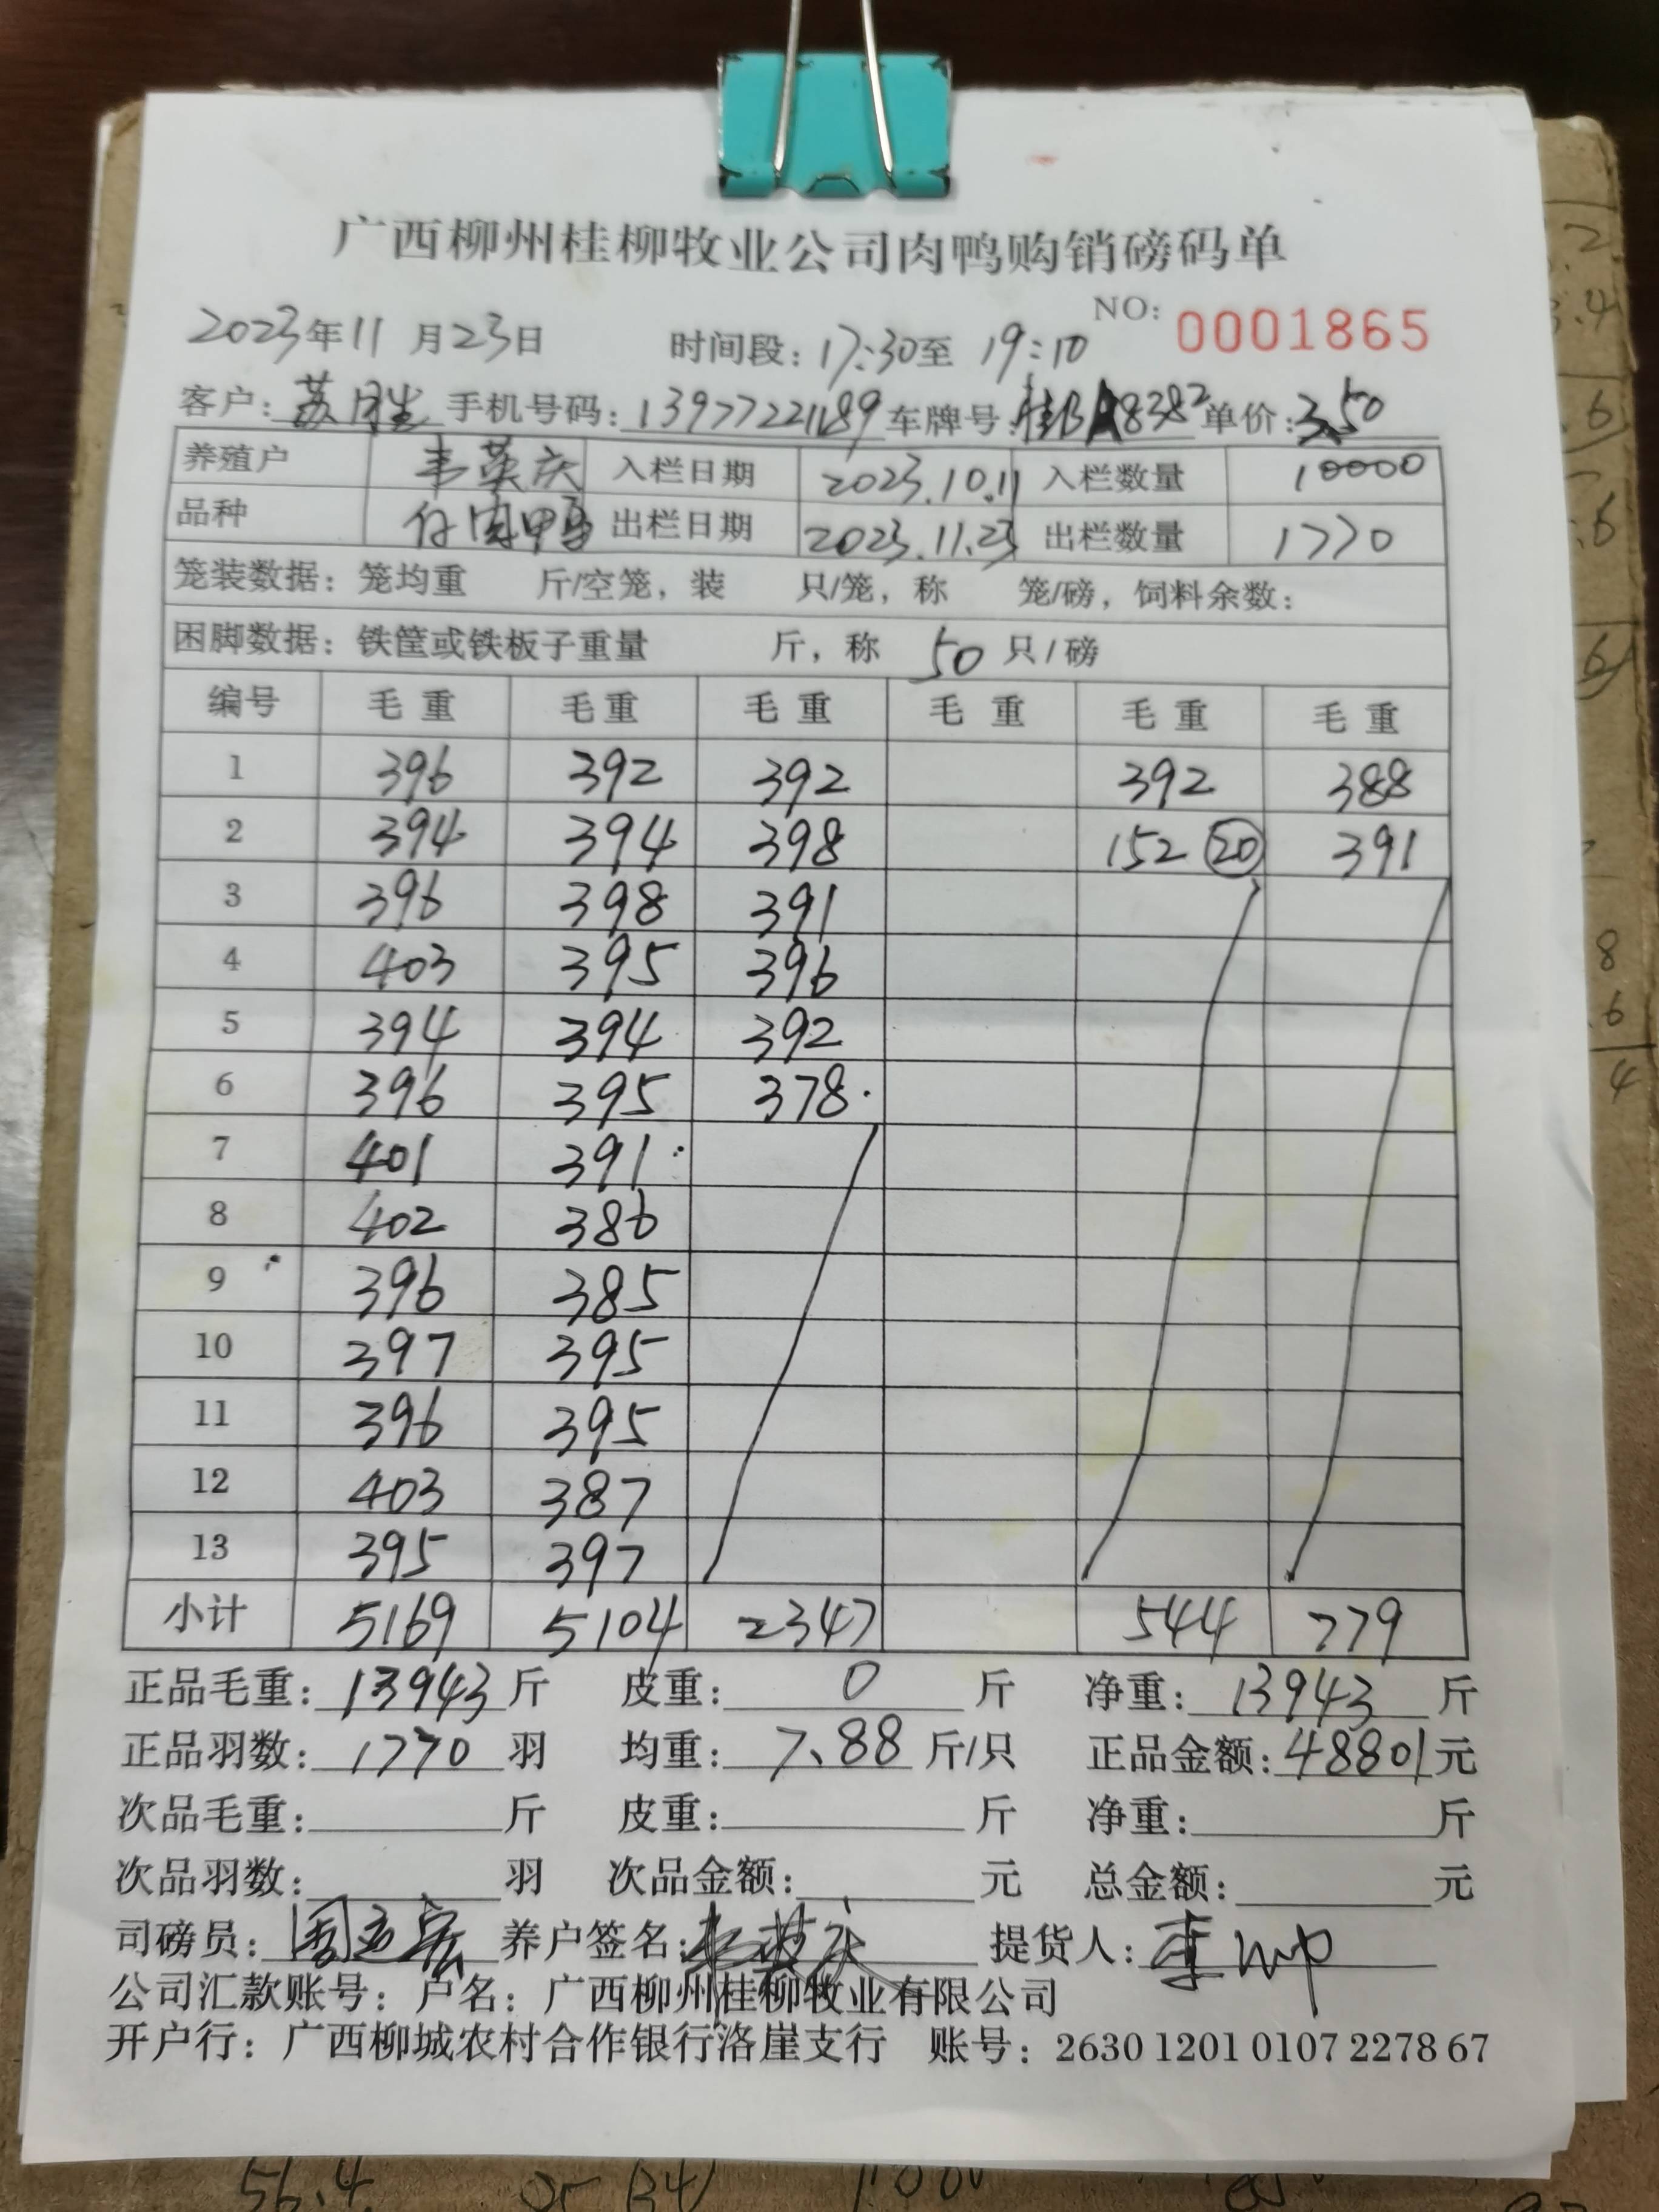 广西柳州桂柳牧业公司肉鸭购销磅码单
NO: 0001865
2023年11月23日 时间段: 17:30至 19:10
客户: 苏胜 手机号码: 13977221189 车牌号: 桂BA8382 单价: 3.50
养殖户 韦英庆 入栏日期 2023.10.11 入栏数量 10000
品种 仔肉鸭 出栏日期 2023.11.23 出栏数量 1770
笼装数据: 笼均重 斤/空笼, 装 只/笼, 称 笼/磅, 饲料余数:
困脚数据: 铁筐或铁板子重量 斤, 称 50 只/磅
编号 毛重 毛重 毛重 毛重 毛重 毛重
1 396 392 392 392 388
2 394 394 398 152 20 391
3 396 398 391
4 403 395 396
5 394 394 392
6 396 395 378.
7 401 391
8 402 386
9 396 385
10 397 395
11 396 395
12 403 387
13 395 397
小计 5169 5104 2347 544 779
正品毛重: 13943 斤 皮重: 0 斤 净重: 13943 斤
正品羽数: 1770 羽 均重: 7.88 斤/只 正品金额: 48801 元
次品毛重: 斤 皮重: 斤 净重: 斤
次品羽数: 羽 次品金额: 元 总金额: 元
司磅员: 养户签名: 韦英庆 提货人:
公司汇款账号: 户名: 广西柳州桂柳牧业有限公司
开户行: 广西柳城农村合作银行洛崖支行 账号: 2630 1201 0107 2278 67